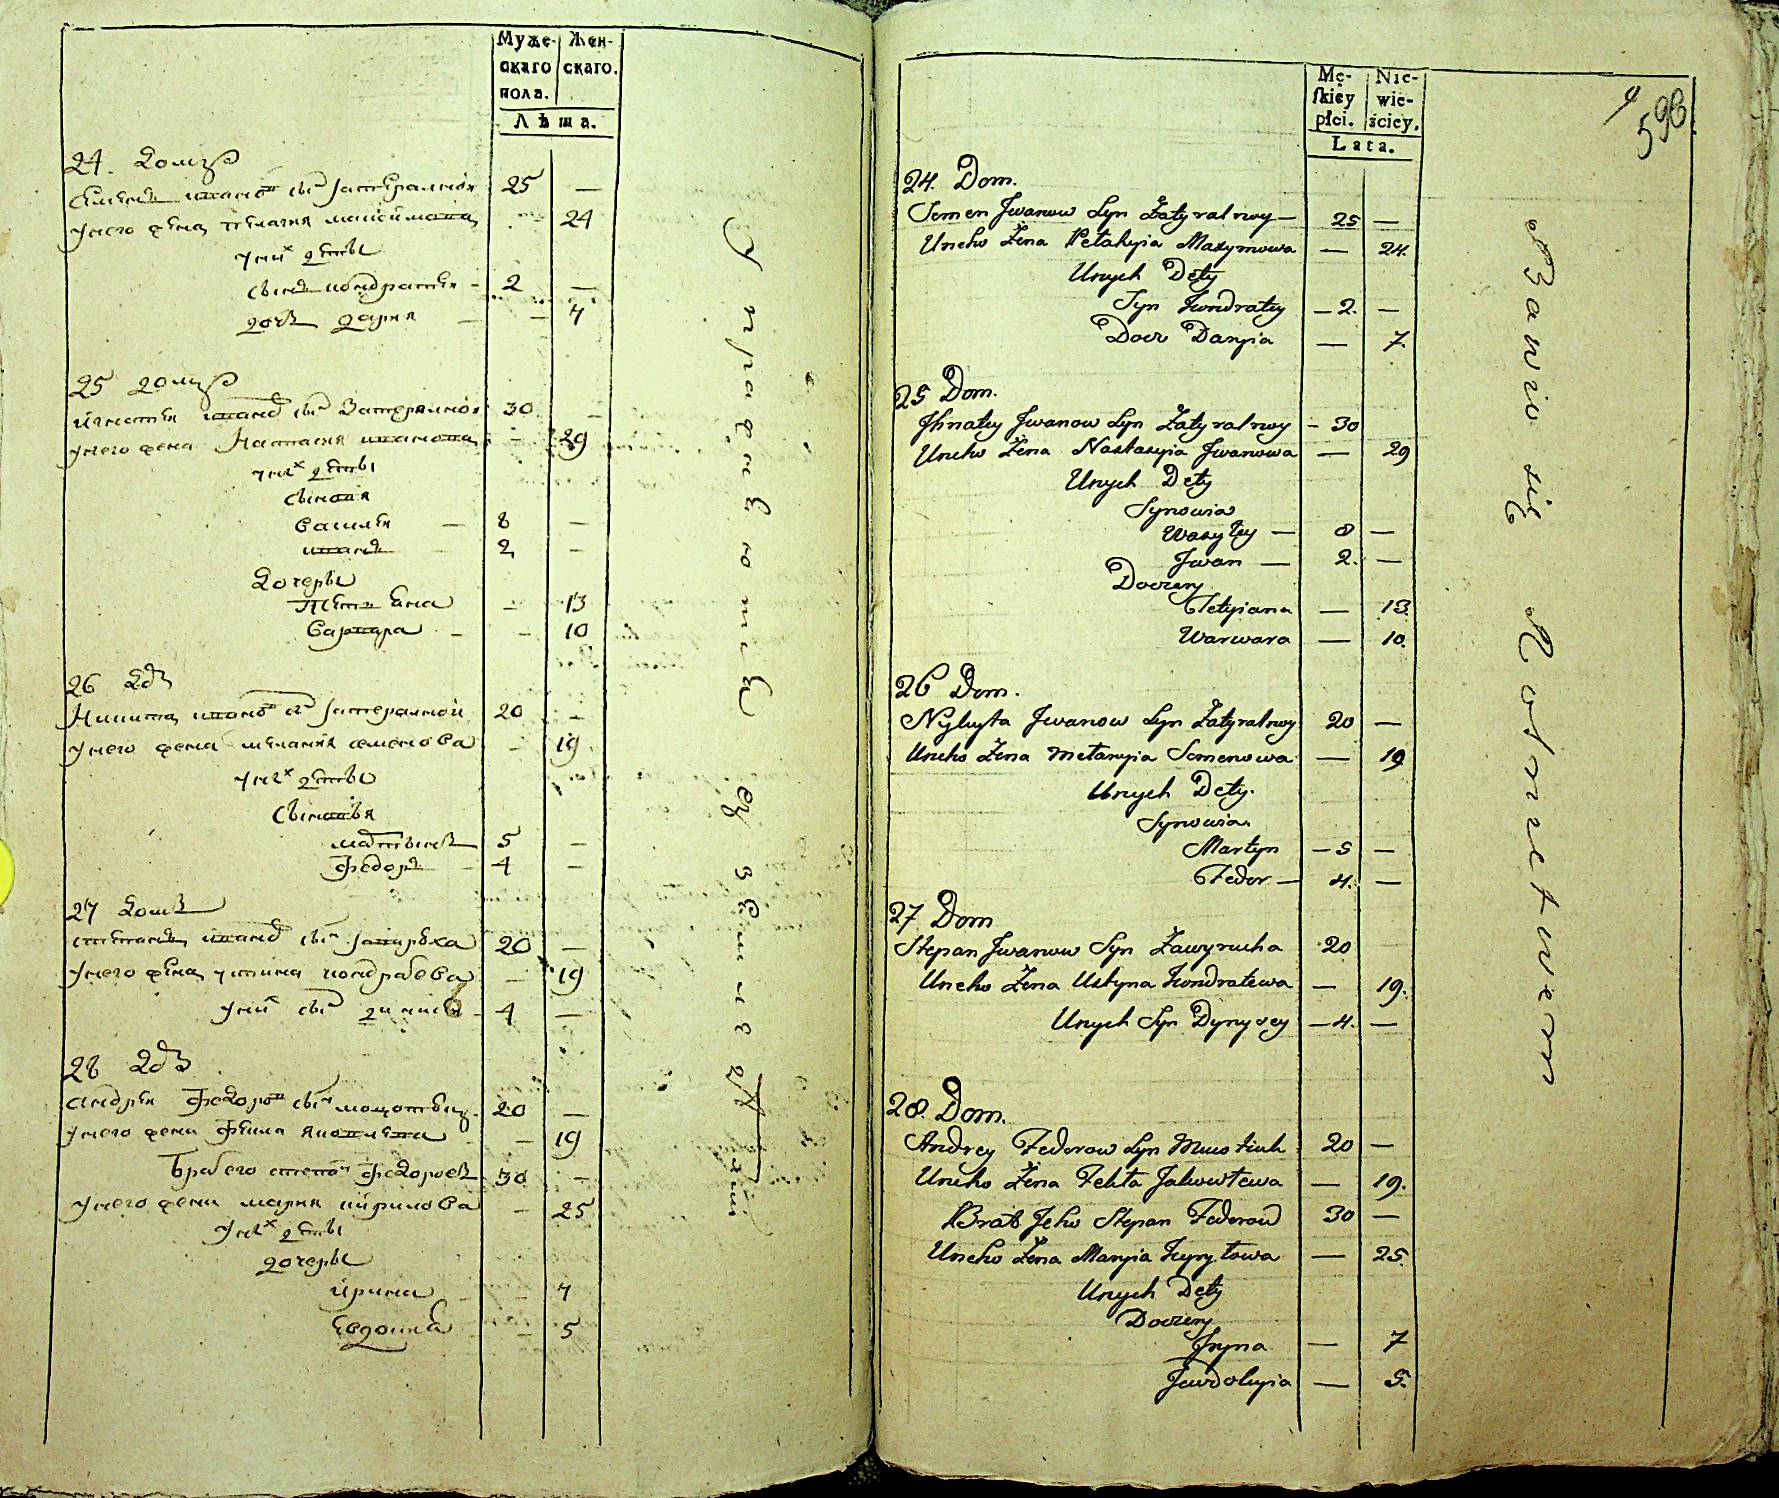 Муже-
скаго
пола.
Жен-
скаго.
Лѣта.
24. Домъ
Семенъ Ивановъ сынъ Затыралной 25 —
У него жена Пелагия Максимова — 24
У них дѣты
Сынъ Кондратий - 2 —
дочь Дария — 7
25 домъ
Игнатий Иванов сын Затыралной 30 —
У него жена Настасия Иванова — 29
У них дѣты
Сыновя
Василий — 8 —
Иванъ 2 —
Дочеры
Тетияна — 13
Варвара — 10
26 Дом
Никита Иванов сын Затыралной 20 —
У него жена Мелания Семенова — 19
У них дѣты
Сыновья
Мартынъ 5 —
Федоръ 4 —
27 Домъ
Степанъ Иванов сын Завируха 20 —
У него жена Устина Кондратева — 19
У них сын Динисий - 4 —
28 Дом
Андрей Федоров сын 20 —
У него жена Фекла Яковлева — 19
Брат его Степан Федоров 30 —
У него жена Мария Кирилова — 25
У них дѣты
дочеры
Ирина — 7
Евдокия — 5
У праж
Mę-
skiey
płci.
Nie-
wie-
ściey.
Lata.
9
596
24. Dom.
Semen Jwanow Syn Zatyralnoy — 25 —
Uneho Żena Pelahyia Maxymowa — 24.
Unych Dety
Syn Kondratey — 2. —
Docz Daryia — 7.
25 Dom.
Jhnatey Jwanow Syn Zatyralnoy - 30
Uneho Żena Nastasyia Jwanowa — 29
Unych Dety
Synowia
Wasyley — 8 —
Jwan — 2. —
Doczery
Tetyiana — 13.
Warwara — 10.
26 Dom.
Nykyta Jwanow Syn Zatyralnoy 20 —
Uneho Żena Melanyia Semenowa — 19
Unych Dety.
Synowia.
Martyn — 5 —
Fedor — 4. —
27 Dom
Stepan Jwanow Syn Zawyrucha 20
Uneho Żena Ustyna Kondratewa — 19.
Unych Syn Dynysey — 4. —
28. Dom.
Andrey Fedorow Syn 20 —
Uneho Żena Fekla Jakowlewa — 19.
Brat Jeho Stepan Fedorow 30 —
Uneho Żena Maryia Kyryłowa — 25.
Unych Dety
Doczery
Jryna — 7
Jewdokyia — 5.
Bawio się Rolnictwem